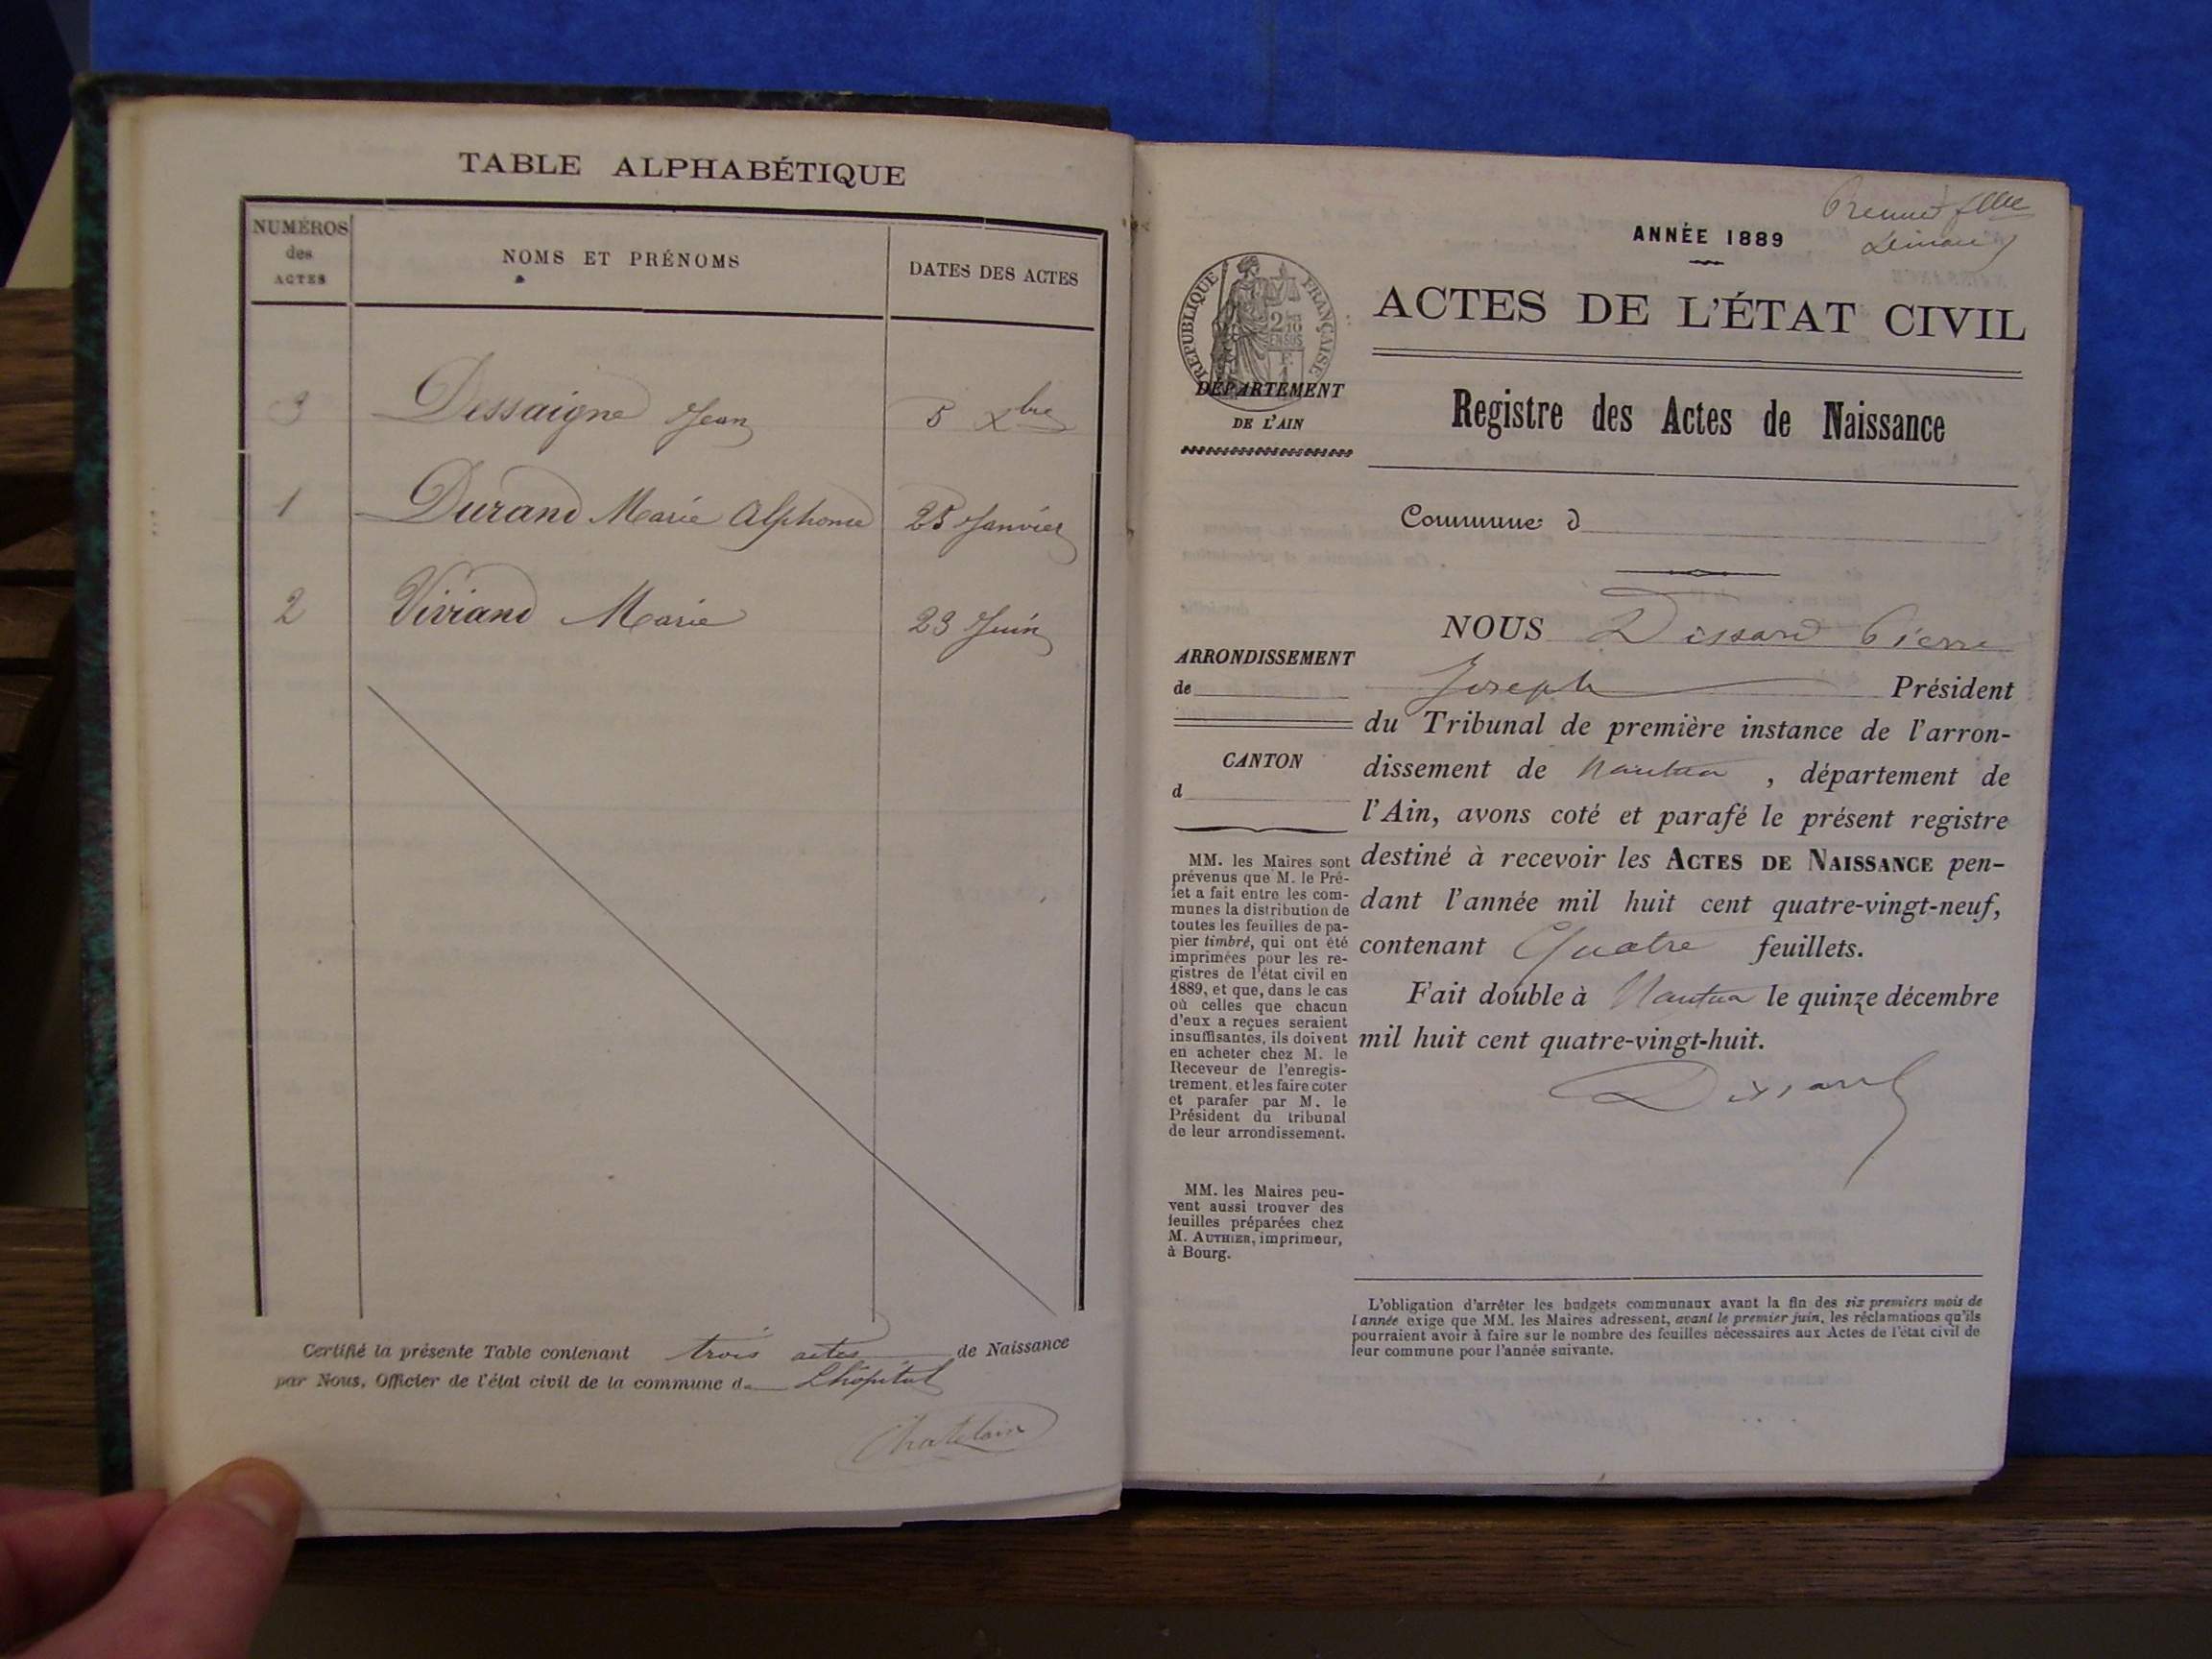 TABLE ALPHABÉTIQUE
NUMÉROS
des
ACTES
NOMS ET PRÉNOMS
DATES DES ACTES
3 Dessaigne Jean 5 Xbre
1 Durand Marie Alphonse 25 Janvier
2 Viviand Marie 23 Juin
Certifié la présente Table contenant trois actes de Naissance
par Nous, Officier de l'état civil de la commune d Lhôpital
Chatelain
ANNÉE 1889
ACTES DE L'ÉTAT CIVIL
RÉPUBLIQUE FRANÇAISE
DÉPARTEMENT
DE L'AIN
Registre des Actes de Naissance
Commune d
ARRONDISSEMENT
de
CANTON
d
MM. les Maires sont
prévenus que M. le Pré-
fet a fait entre les com-
munes la distribution de
toutes les feuilles de pa-
pier timbré, qui ont été
imprimées pour les re-
gistres de l'état civil en
1889, et que, dans le cas
où celles que chacun
d'eux a reçues seraient
insuffisantes, ils doivent
en acheter chez M. le
Receveur de l'enregis-
trement, et les faire coter
et parafer par M. le
Président du tribunal
de leur arrondissement.
MM. les Maires peu-
vent aussi trouver des
feuilles préparées chez
M. AUTHIER, imprimeur,
à Bourg.
NOUS Dissard Pierre
Joseph Président
du Tribunal de première instance de l'arron-
dissement de Nantua , département de
l'Ain, avons coté et parafé le présent registre
destiné à recevoir les ACTES DE NAISSANCE pen-
dant l'année mil huit cent quatre-vingt-neuf,
contenant Quatre feuillets.
Fait double à Nantua le quinze décembre
mil huit cent quatre-vingt-huit.
Dissard
L'obligation d'arrêter les budgets communaux avant la fin des six premiers mois de
l'année exige que MM. les Maires adressent, avant le premier juin, les réclamations qu'ils
pourraient avoir à faire sur le nombre des feuilles nécessaires aux Actes de l'état civil de
leur commune pour l'année suivante.